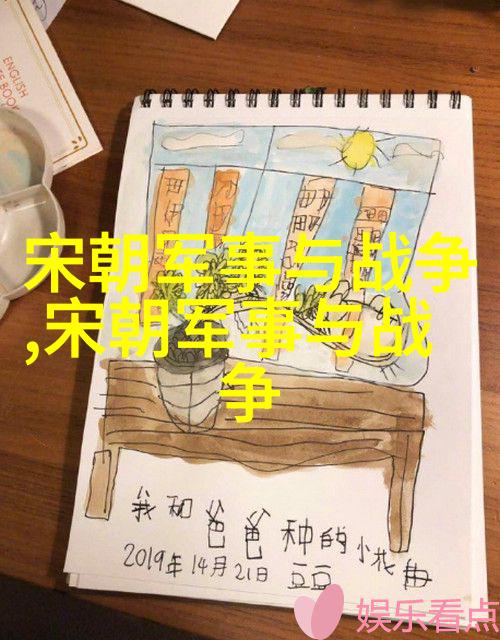 ENGLISH
宋朝军事与战争
,宋朝军事与战
争
我和爸爸种的小花
2019年14月21日 豆豆
娱乐看点